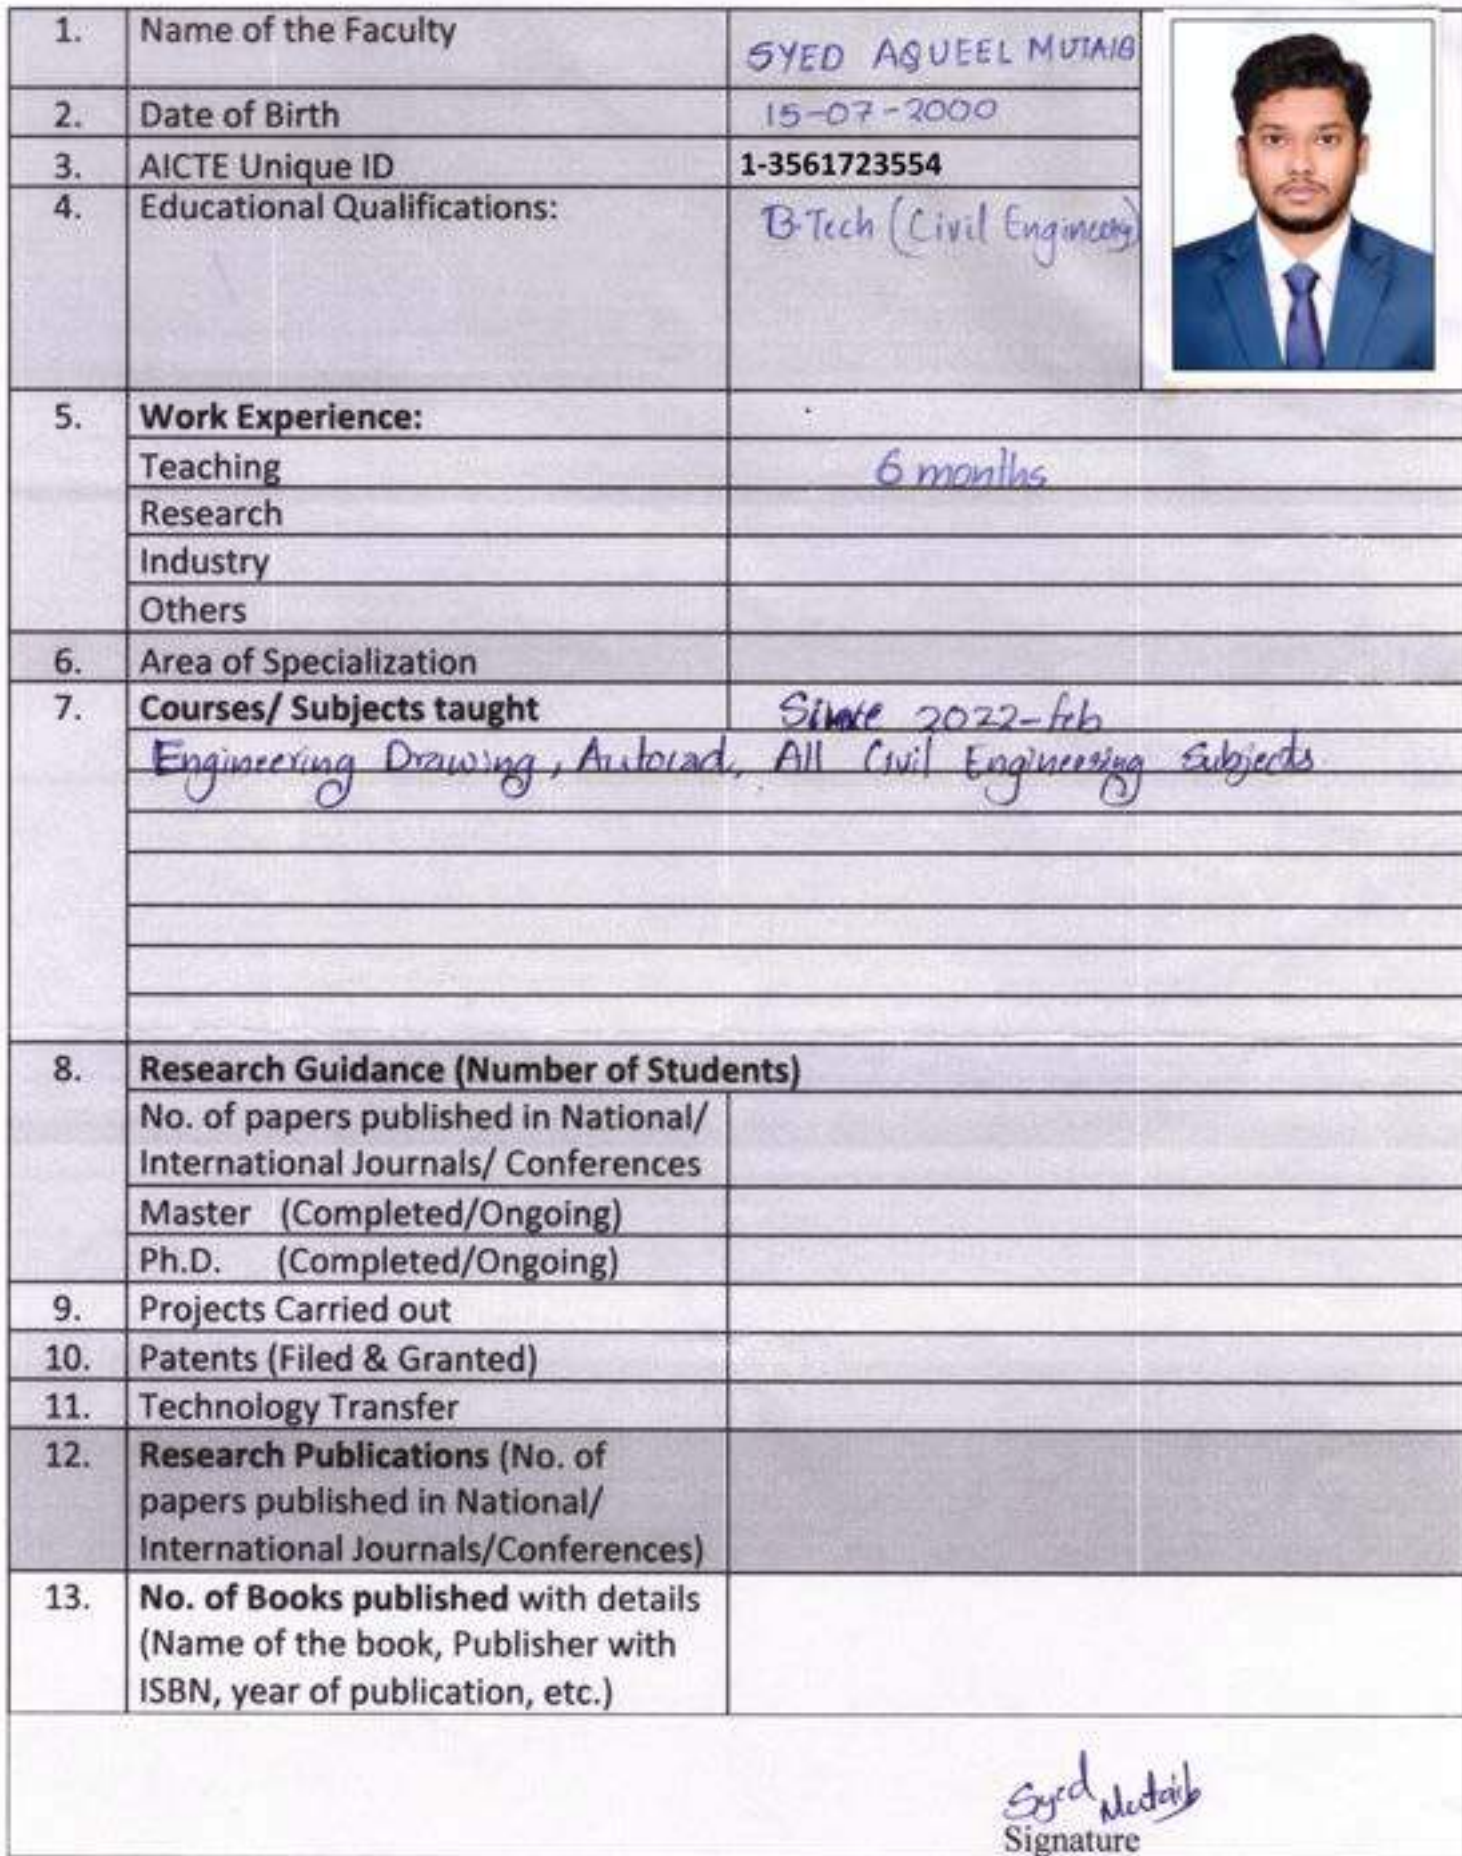 1. Name of the Faculty SYED AQUEEL MUTAIB
2. Date of Birth 15-07-2000
3. AICTE Unique ID 1-3561723554
4. Educational Qualifications: B.Tech (Civil Engineering)
5. Work Experience:
Teaching 6 months
Research
Industry
Others
6. Area of Specialization
7. Courses/ Subjects taught Since 2022-feb
Engineering Drawing, Autocad, All Civil Engineering Subjects
8. Research Guidance (Number of Students)
No. of papers published in National/
International Journals/ Conferences
Master (Completed/Ongoing)
Ph.D. (Completed/Ongoing)
9. Projects Carried out
10. Patents (Filed & Granted)
11. Technology Transfer
12. Research Publications (No. of
papers published in National/
International Journals/Conferences)
13. No. of Books published with details
(Name of the book, Publisher with
ISBN, year of publication, etc.)
Syed Mutaib
Signature